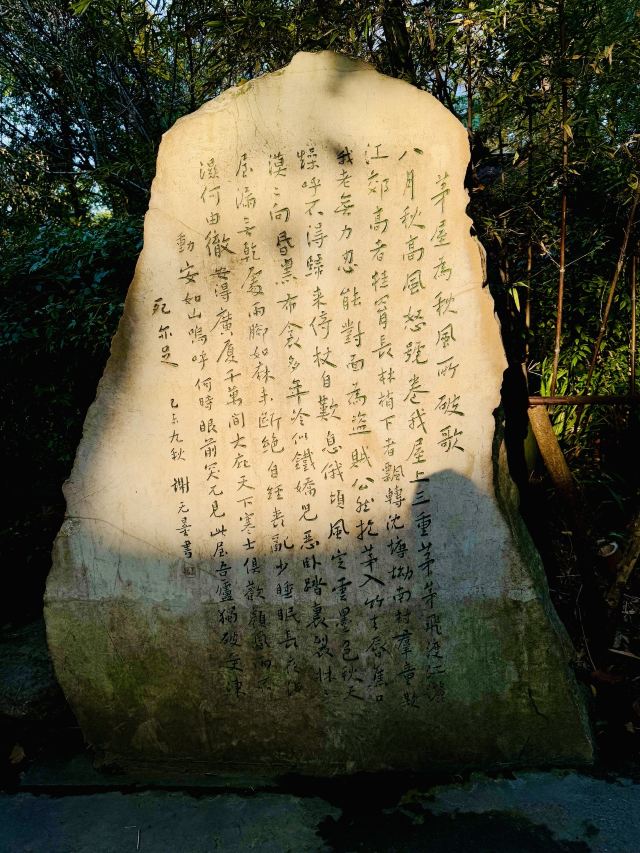 茅屋為秋風所破歌
八月秋高風怒號卷我屋上三重茅茅飛渡江灑
江郊高者挂罥長林梢下者飄轉沈塘坳南村群童欺
我老無力忍能對面為盜賊公然抱茅入竹去唇焦口
燥呼不得歸來倚杖自歎息俄頃風定雲墨色秋天
漠〻向昏黑布衾多年冷似鐵嬌兒惡卧踏裏裂牀〻
屋漏无乾處雨腳如麻未斷絕自經喪亂少睡眠長夜沾
濕何由徹安得廣厦千萬間大庇天下寒士俱歡顏風雨不
動安如山嗚呼何時眼前突兀見此屋吾廬獨破受凍
死亦足
乙未九秋 謝无量書